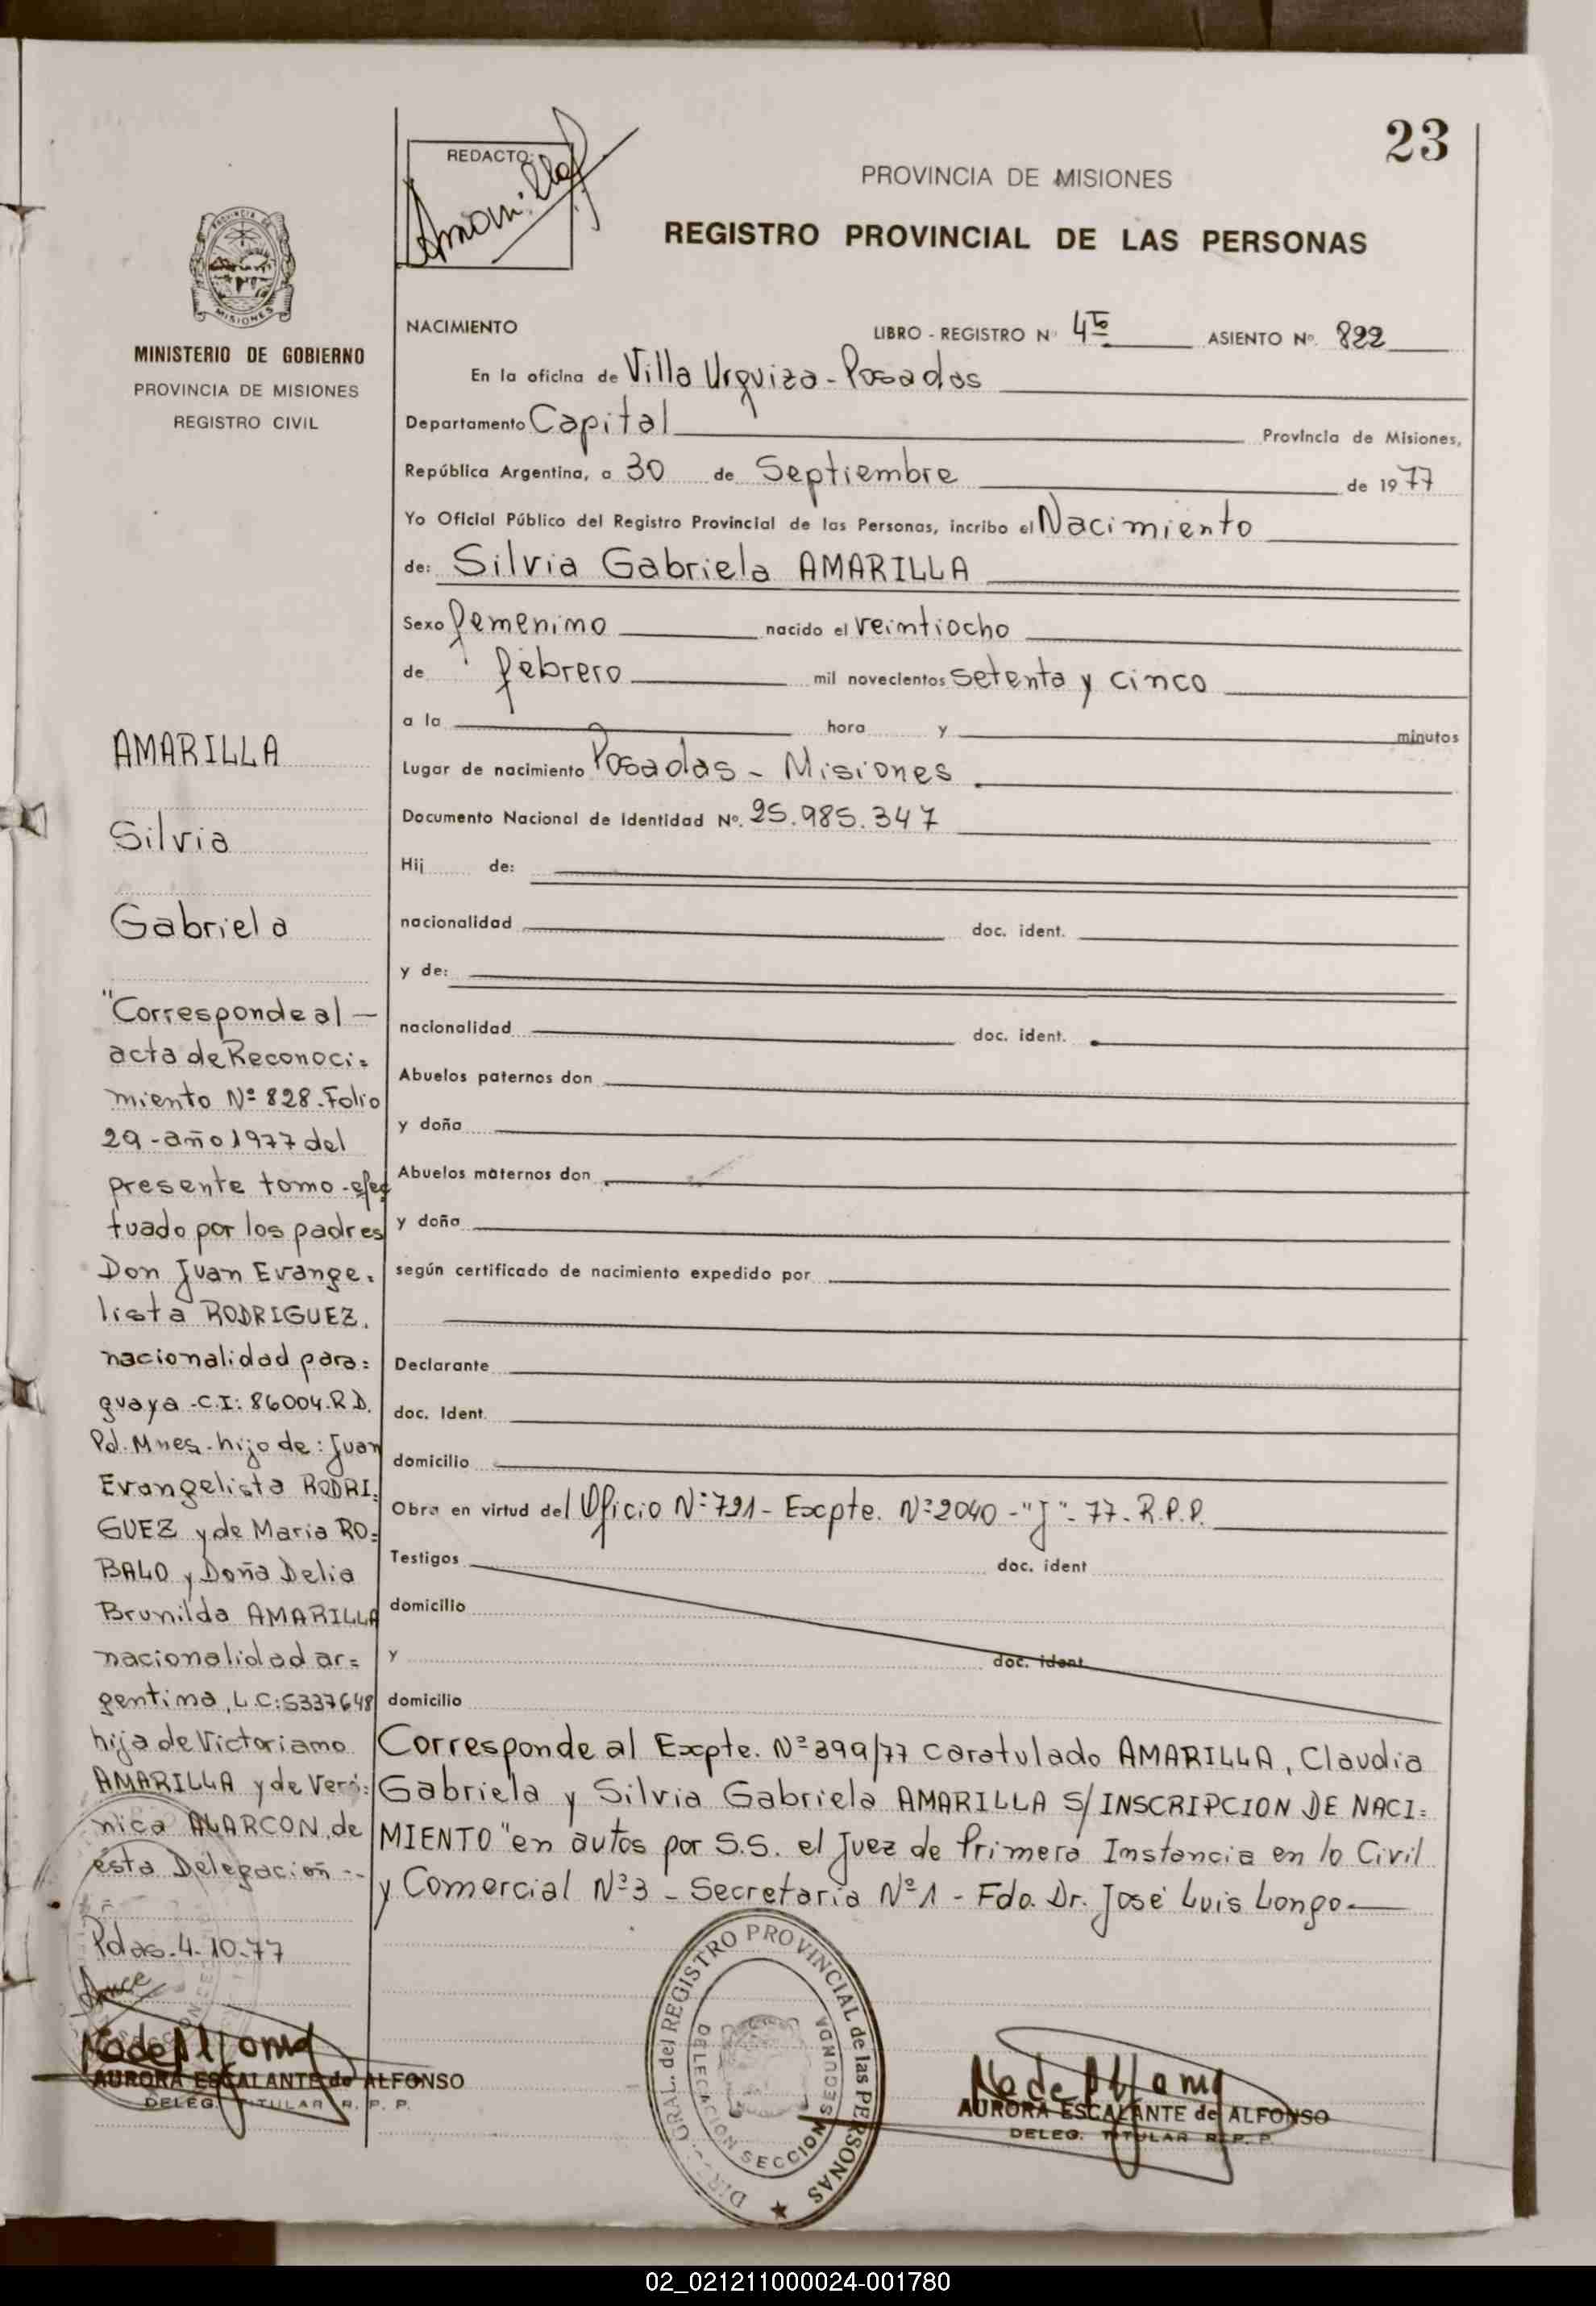 23
REDACTO:
Amarilla
PROVINCIA DE MISIONES
REGISTRO PROVINCIAL DE LAS PERSONAS
MISIONES
MINISTERIO DE GOBIERNO
PROVINCIA DE MISIONES
REGISTRO CIVIL
NACIMIENTO LIBRO - REGISTRO Nº 4to ASIENTO Nº. 822
En la oficina de Villa Urquiza - Posadas
Departamento Capital Provincia de Misiones,
República Argentina, a 30 de Septiembre de 1977
Yo Oficial Público del Registro Provincial de las Personas, incribo el Nacimiento
de: Silvia Gabriela AMARILLA
Sexo femenino nacido el veintiocho
de febrero mil novecientos setenta y cinco
a la hora y minutos
Lugar de nacimiento Posadas - Misiones
Documento Nacional de Identidad Nº. 25.985.347
Hij de:
nacionalidad doc. ident.
y de:
nacionalidad doc. ident.
Abuelos paternos don
y doña
Abuelos maternos don
y doña
según certificado de nacimiento expedido por
Declarante
doc. Ident.
domicilio
Obra en virtud del Oficio Nº 791 - Excpte. Nº 2040 - "J" - 77 - R.P.P.
Testigos doc. ident
domicilio
y doc. ident
domicilio
Corresponde al Excpte. Nº 399/77 caratulado AMARILLA, Claudia
Gabriela y Silvia Gabriela AMARILLA S/ INSCRIPCION DE NACI=
MIENTO "en autos por S.S. el Juez de Primera Instancia en lo Civil
y Comercial Nº 3 - Secretaria Nº 1 - Fdo. Dr. José Luis Longo
AMARILLA
Silvia
Gabriela
"Corresponde al
acta de Reconoci=
miento Nº 828. Folio
29 - año 1977 del
presente tomo - efec
tuado por los padres
Don Juan Evange=
lista RODRIGUEZ.
nacionalidad para=
guaya - C.I: 86004. R.D.
Pd. Mnes. hijo de: Juan
Evangelista RODRI=
GUEZ y de Maria RO=
BALO y Doña Delia
Brunilda AMARILLA
nacionalidad ar=
gentina, L.C: 5337648
hija de Victoriano
AMARILLA y de Veró=
nica ALARCON, de
ésta Delegación -.-
Pdas. 4-10-77
AURORA ESCALANTE de ALFONSO
DELEG. TITULAR R. P. P.
DIR. GRAL. del REGISTRO PROVINCIAL de las PERSONAS
DELEGACION SECCION SEGUNDA
AURORA ESCALANTE de ALFONSO
DELEG. TITULAR R. P. P.
02_021211000024-001780